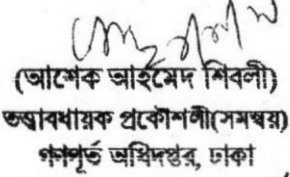 (আশেক আহমেদ শিবলী)
তত্ত্বাবধায়ক প্রকৌশলী(সমন্বয়)
গণপূর্ত অধিদপ্তর, ঢাকা